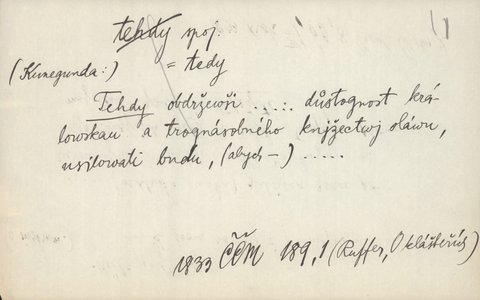 tehdy spoj.
(Kunegunda:) = tedy
Tehdy obdrževši ..... důstognost krá-
lowskau a trognásobného knjžectwj sláwu,
usilowati budu, (abych –) .....
1833 ČČM 189,1 (Ruffer, O klášteřích)